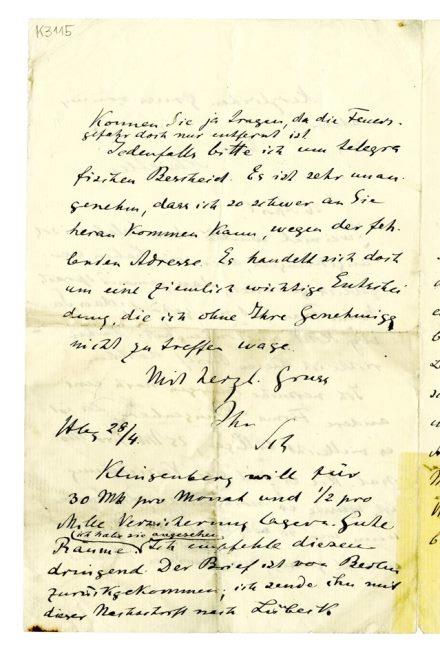 K3115
Können Sie ja tragen, da die Feuers-
gefahr doch nur entfernt ist.
Jedenfalls bitte ich um telegra
fischen Bescheid. Es ist sehr unan-
genehm, dass ich so schwer an Sie
heran kommen kann, wegen der feh-
lenden Adresse. Es handelt sich doch
um eine ziemlich wichtige Entschei
dung, die ich ohne Ihre Genehmigg
nicht zu treffen wage.
Mit herzl. Gruss
Ihr
Sch
Hbg 28/4.
Klingenberg will für
30 Mk pro Monat und 1/2 pro
Mille Versicherung lagern. Gute
(ich habe sie angesehen.
Räume. Ich empfehle diesen
dringend. Der Brief ist von Berlin
zurückgekommen; ich sende ihn mit
dieser Nachschrift nach Lübeck.